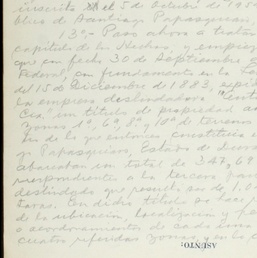 el 5 de Octubre de 195
Santiago Papasquiaro
13º- Paso ahora a tratar
capítulo de los Hechos, y empiezo
que con fecha 30 de Septiembre
Federal", con fundamento en la
del 15 de Diciembre de 1883,
la empresa deslindadora
Cía", un título de propiedad
zonas 1ª, 6ª, 9ª y 10ª de terreno
en lo que entonces constituía el
Papasquiaro, Estado de Duran
abarcaban un total de 347,69
rrespondientes a la tercera parte
deslindada que resultó ser de 1,0
taras. Con dicho título se hace
de la ubicación, localización y
o acordonamientos de cada una
cuatro referidas zonas, y en la
ASUNTO: